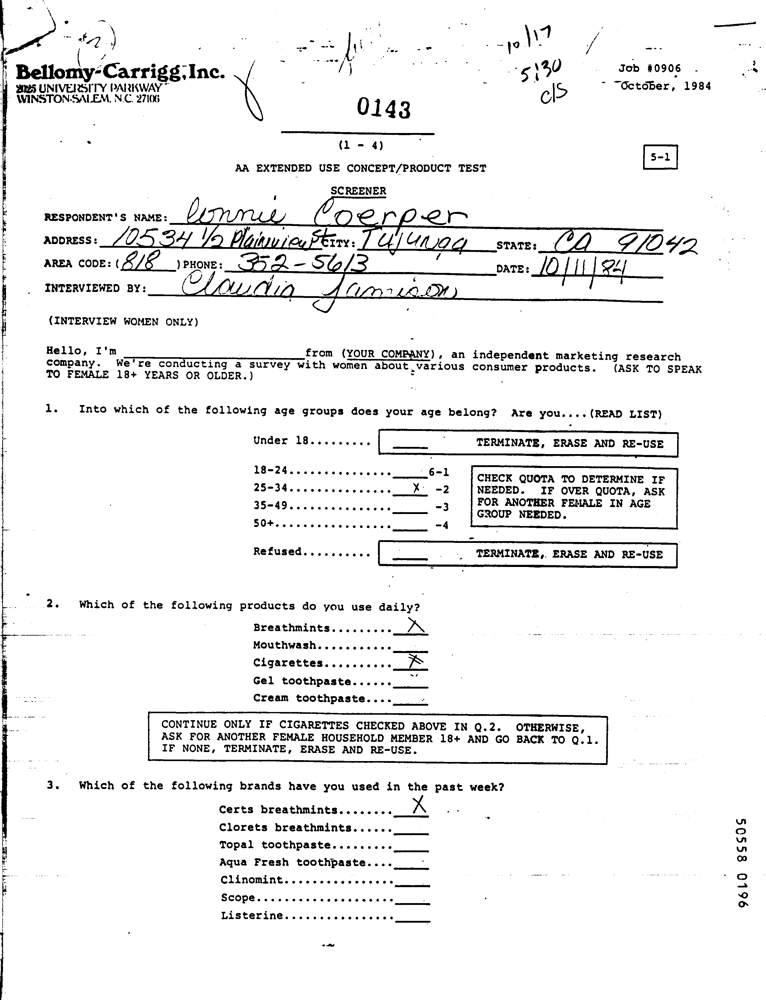 10/17
5:30
C/S
Bellomy-Carrigg, Inc.
2125 UNIVERSITY PARKWAY
WINSTON-SALEM, N.C. 27106
Job #0906
October, 1984
0143
(1 - 4)
5-1
AA EXTENDED USE CONCEPT/PRODUCT TEST
SCREENER
RESPONDENT'S NAME: Connie Coerper
ADDRESS: 10534 1/2 Plainview St CITY: Tujunga STATE: CA 91042
AREA CODE: (818) PHONE: 352-5613 DATE: 10/11/84
INTERVIEWED BY: Claudia Jamison
(INTERVIEW WOMEN ONLY)
Hello, I'm ____ from (YOUR COMPANY), an independent marketing research
company. We're conducting a survey with women about various consumer products. (ASK TO SPEAK
TO FEMALE 18+ YEARS OR OLDER.)
1. Into which of the following age groups does your age belong? Are you....(READ LIST)
Under 18......... ____ TERMINATE, ERASE AND RE-USE
18-24............... ____ 6-1
25-34............... X -2
35-49............... ____ -3
50+................. ____ -4
CHECK QUOTA TO DETERMINE IF
NEEDED. IF OVER QUOTA, ASK
FOR ANOTHER FEMALE IN AGE
GROUP NEEDED.
Refused.......... ____ TERMINATE, ERASE AND RE-USE
2. Which of the following products do you use daily?
Breathmints......... X
Mouthwash........... ____
Cigarettes.......... X
Gel toothpaste...... ____
Cream toothpaste.... ____
CONTINUE ONLY IF CIGARETTES CHECKED ABOVE IN Q.2. OTHERWISE,
ASK FOR ANOTHER FEMALE HOUSEHOLD MEMBER 18+ AND GO BACK TO Q.1.
IF NONE, TERMINATE, ERASE AND RE-USE.
3. Which of the following brands have you used in the past week?
Certs breathmints........ X
Clorets breathmints...... ____
Topal toothpaste......... ____
Aqua Fresh toothpaste.... ____
Clinomint................ ____
Scope.................... ____
Listerine................ ____
50558 0196